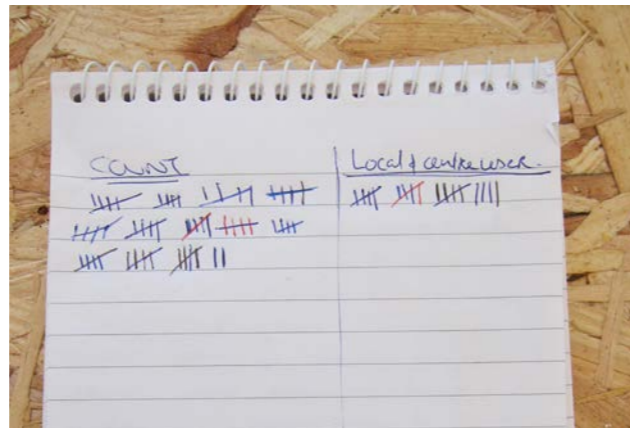 COUNT
Local & centre user.